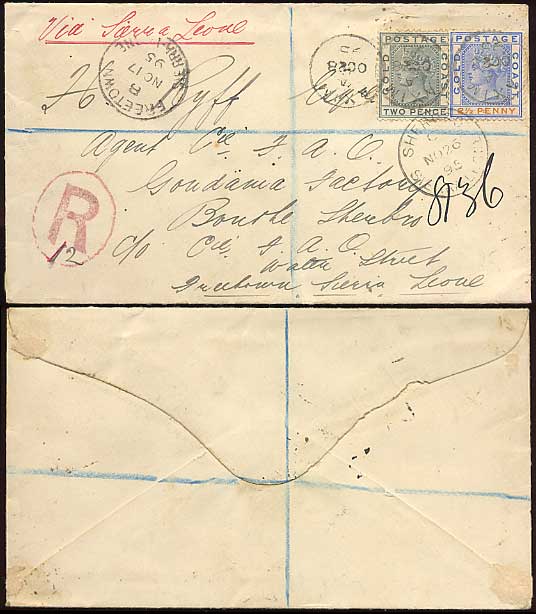 Via Sierra Leone
FREETOWN
SIERRA LEONE
B
NO 17
95
OC 28
POSTAGE
GOLD COAST
TWO PENCE
POSTAGE
GOLD COAST
2½ PENNY
SHERBRO
NO 26
95
A
Agent Cie. F. A. O.
Goudama Factory
Bonthe Sherbro
836
R
12
c/o Cie F. A. O.
Water Street
Freetown Sierra Leone